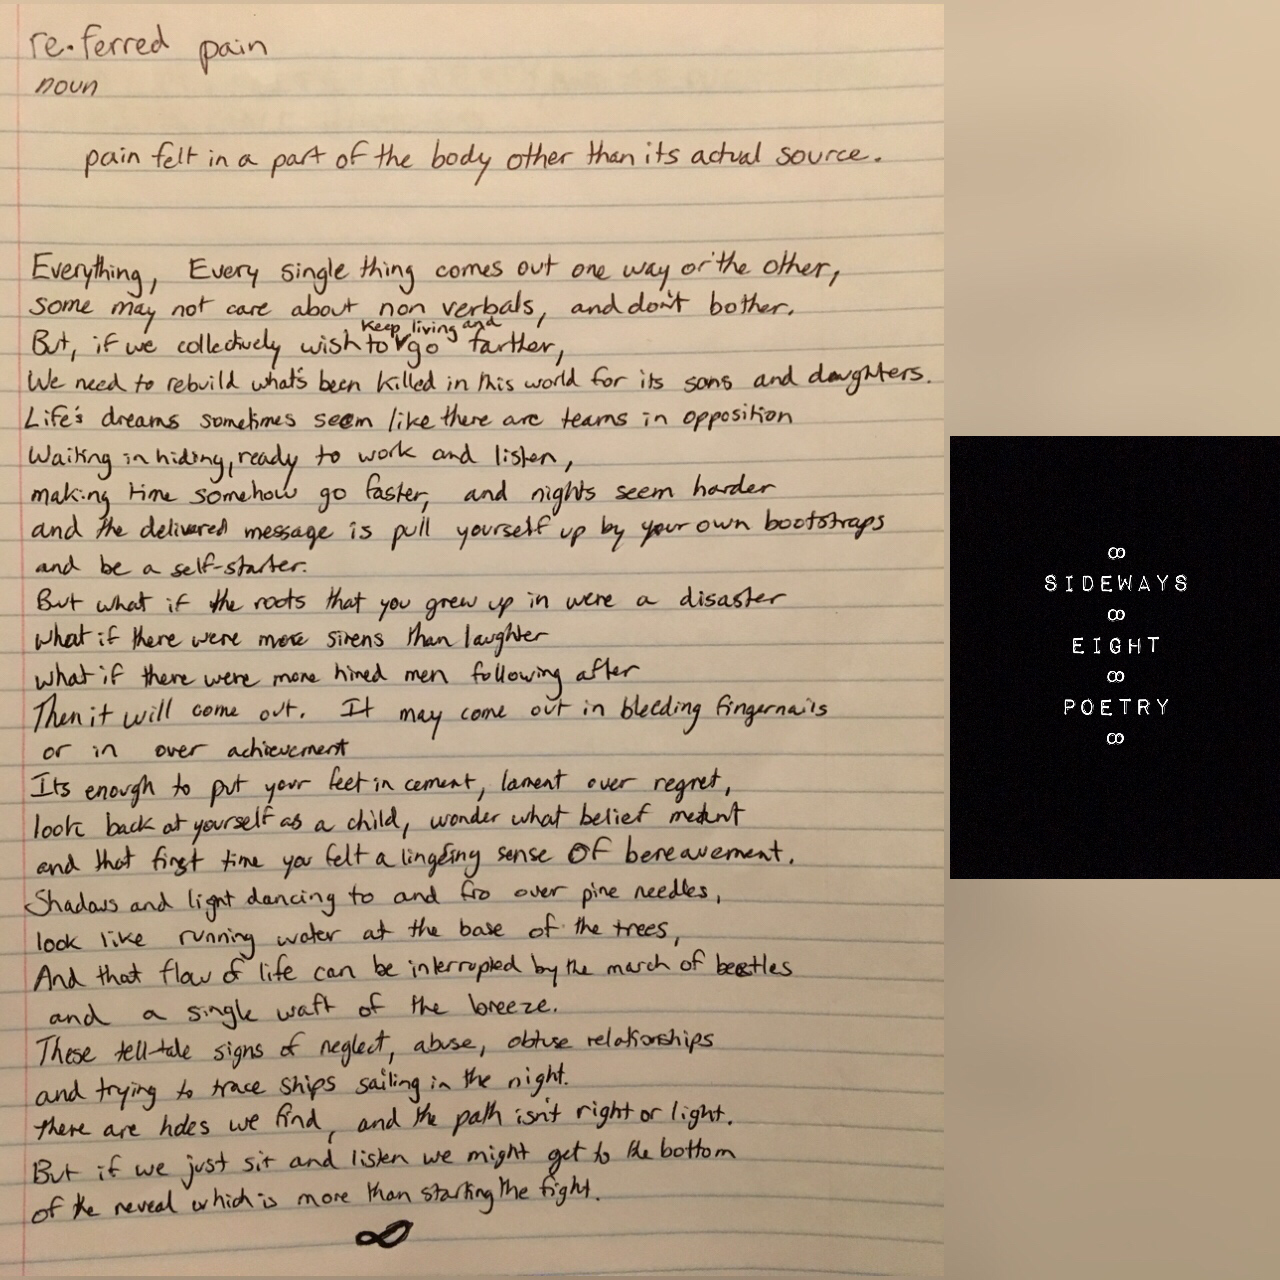 re•ferred pain
noun
pain felt in a part of the body other than its actual source.
Everything, Every single thing comes out one way or the other,
some may not care about non verbals, and don't bother.
But, if we collectively wish to keep living and go farther,
We need to rebuild what's been killed in this world for its sons and daughters.
Life's dreams sometimes seem like there are teams in opposition
Waiting in hiding, ready to work and listen,
making time somehow go faster, and nights seem harder
and the delivered message is pull yourself up by your own bootstraps
and be a self-starter.
But what if the roots that you grew up in were a disaster
what if there were more sirens than laughter
what if there were more hired men following after
Then it will come out. It may come out in bleeding fingernails
or in over achievement
Its enough to put your feet in cement, lament over regret,
look back at yourself as a child, wonder what belief meant
and that first time you felt a lingering sense of bereavement.
Shadows and light dancing to and fro over pine needles,
look like running water at the base of the trees,
And that flow of life can be interrupted by the march of beetles
and a single waft of the breeze.
These tell-tale signs of neglect, abuse, obtuse relationships
and trying to trace ships sailing in the night.
there are holes we find, and the path isn't right or light.
But if we just sit and listen we might get to the bottom
of the reveal which is more than starting the fight.
∞
∞
SIDEWAYS
∞
EIGHT
∞
POETRY
∞